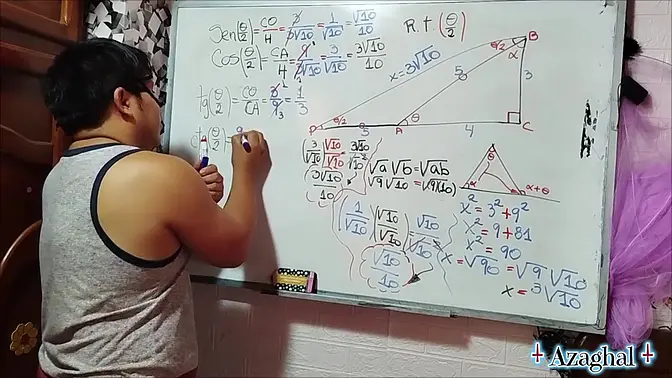 Sen(θ/2) = CO/H = 3/3√10 = 1/√10 = √10/10
Cos(θ/2) = CA/H = 9/3√10 = 3/√10 = 3√10/10
tg(θ/2) = CO/CA = 3/9 = 1/3
ctg(θ/2) = 9
R.t (θ/2)
x=3√10
θ/2
B
α
5
3
D
θ/2
5
A
θ
4
C
3/√10 √10/√10 = 3√10/√10²
3√10/10
√a √b = √ab
√9 √10 = √9(10)
(1/√10)(√10/√10) = √10/√10²
√10/10
θ
α
α+θ
x² = 3² + 9²
x² = 9 + 81
x² = 90
x = √90 = √9 √10
x = 3√10
Azaghal